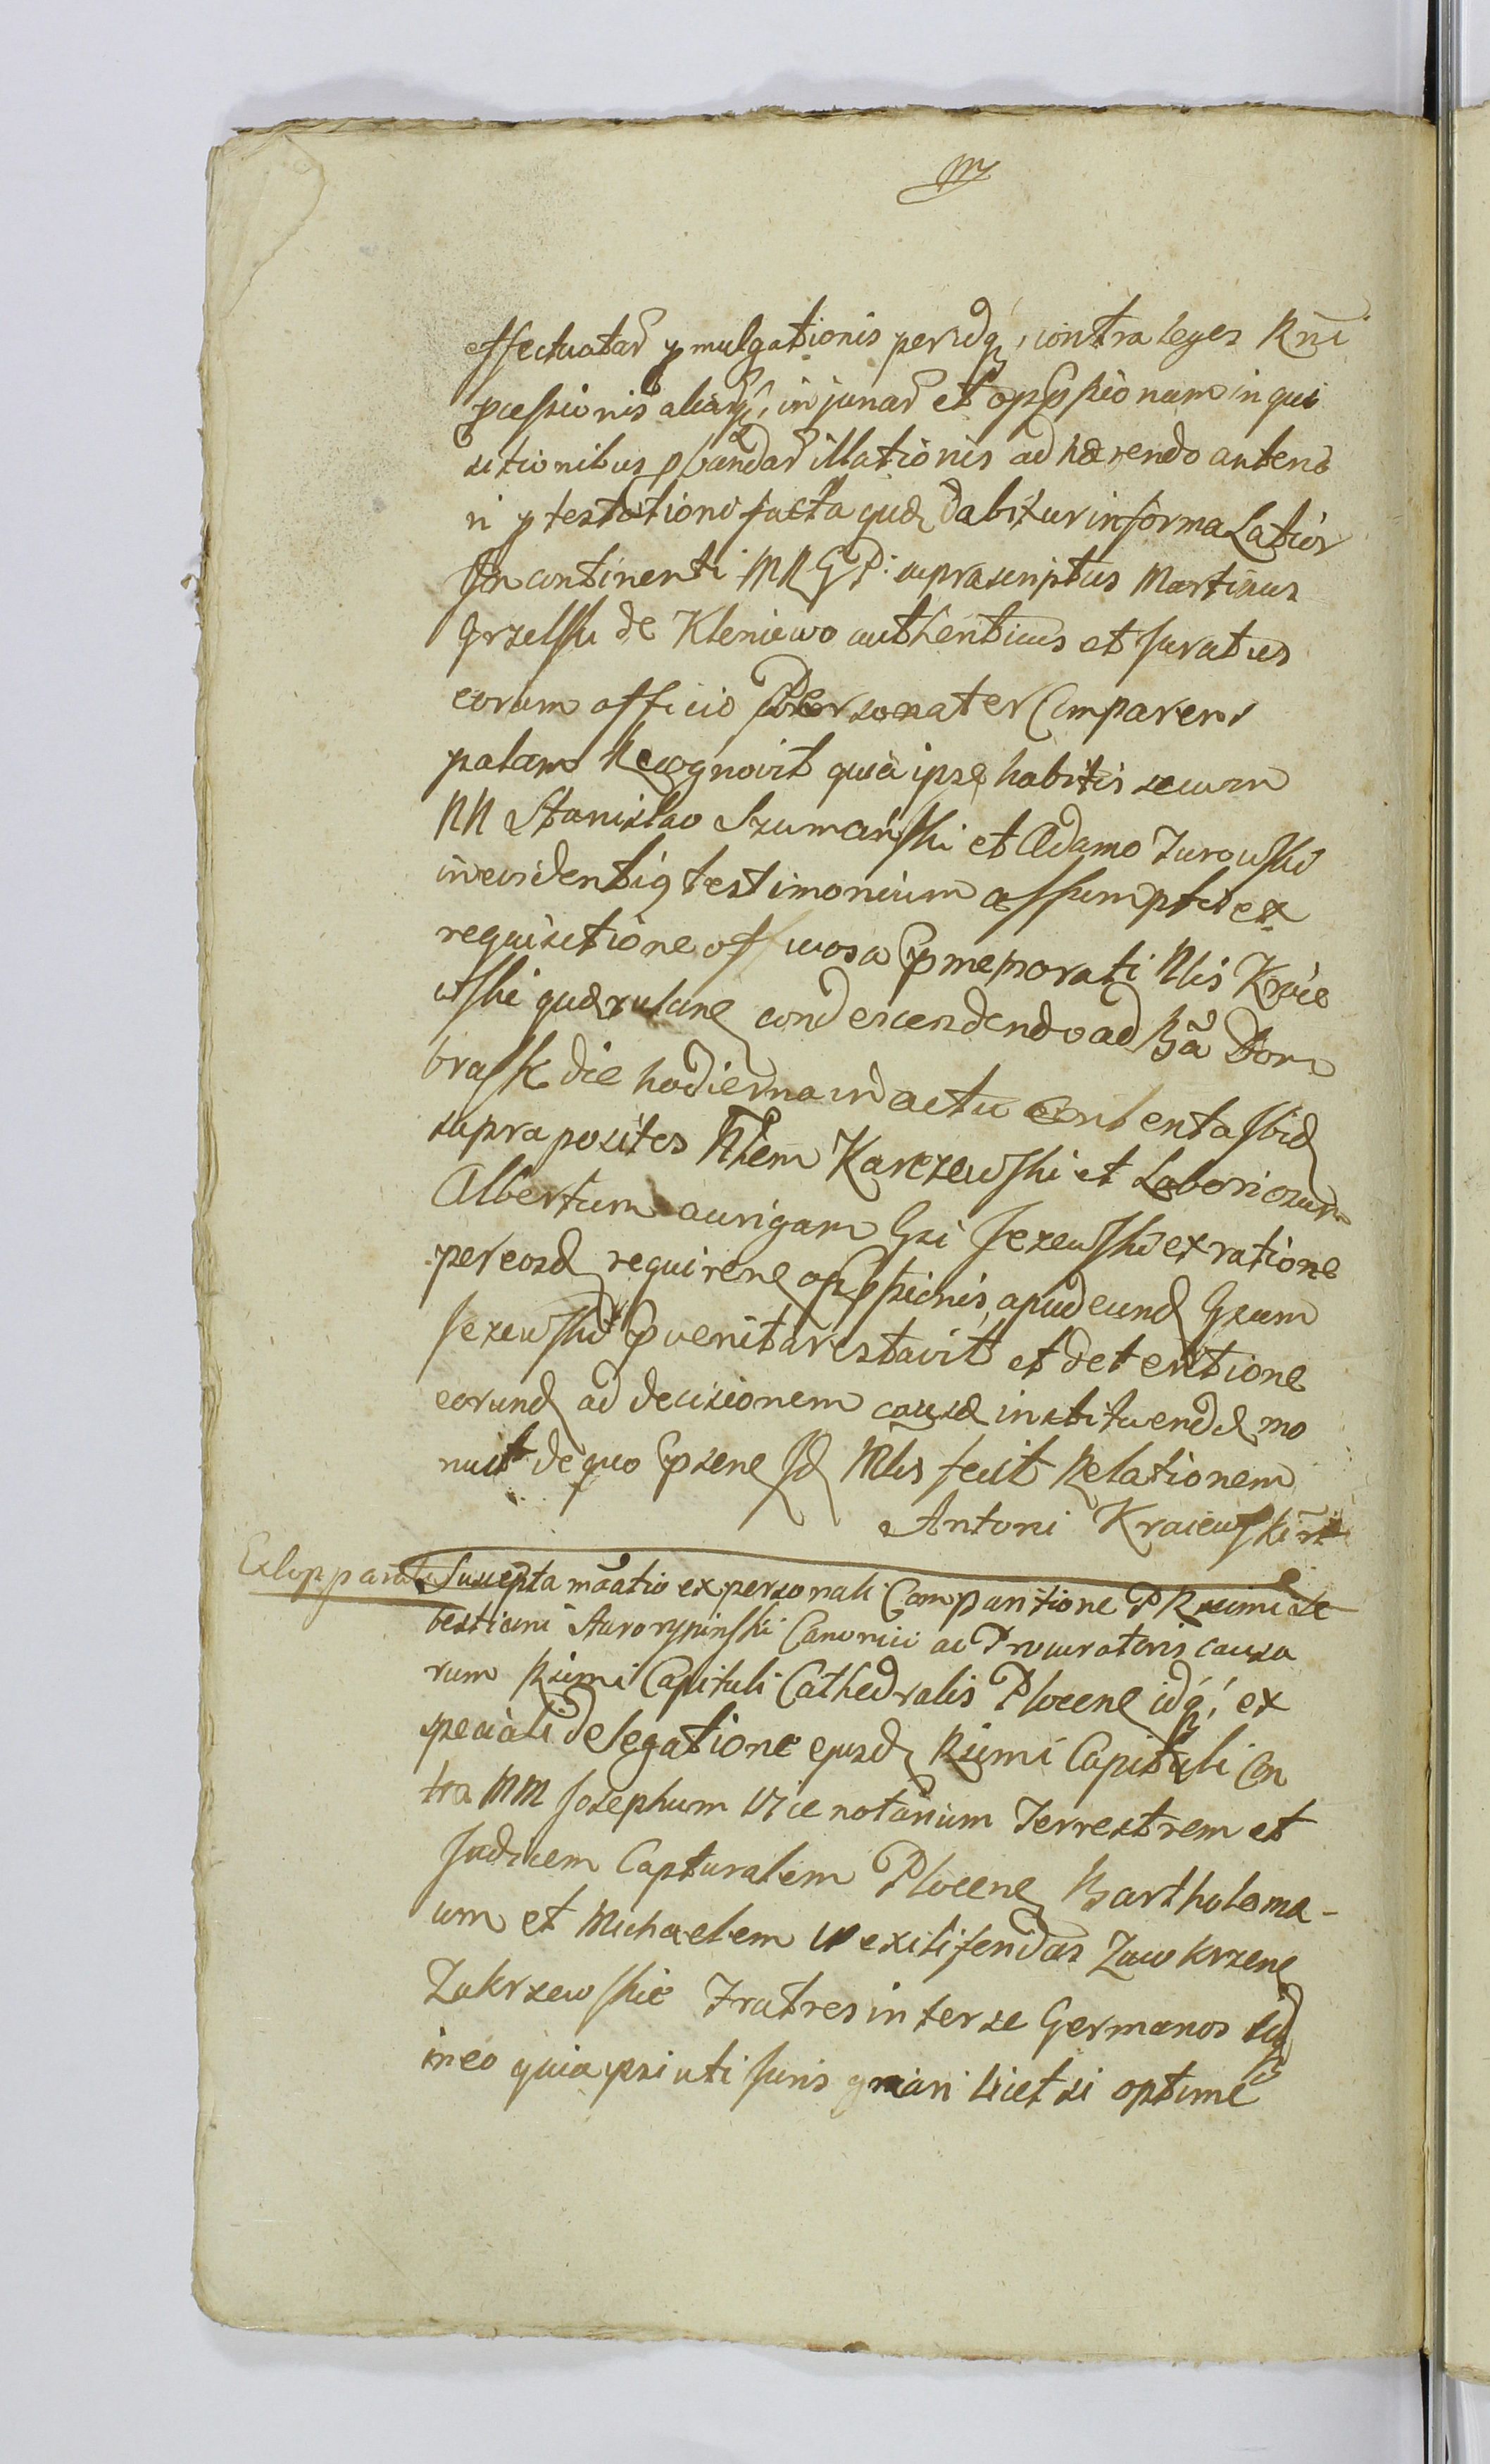 effectuatar pmulgationis peridq, contra leges Rni
pcessionis aliarq, injuriar et oppssionum in qui
sitionibus pbandar illationis adhærendo anterio
ri ptestationi facta quæ dabitur in forma Latior
In continenti MNGP: suprascriptus Martinus
Grzelski de Kleniewo authenticus et Juratus
coram officio Personaliter Comparens
palam Recognovit quia ipse habitis secum
NN Stanislao Szumański et Adamo Turowski
in evidentiq testimonium assumptis ex
requisitione officiosa pmemorati Nlis Kraie
wski querulane condescendendo ad Bā Dom
brosk die hodierna in actu conventa ibid
supra positos Nlem Karczewski et Laboriosum
Albertum aurigam Gsi Jezewski ex ratione
per eosd requirene oppssionis, apud eund Gsum
Jezewski pvenit arestavit et detentione
eorund ad decisionem causæ instituendæ mo
nuit de quo psene Id Nlis fecit Relationem
Antoni Kraiewski
Suscepta māatio ex personali Comparitione P Rsimi Se
bestiani Starorypinski Canonici ac Procuratoris causa
rum Rsimi Capituli Cathedralis Plocene idq, ex
speciali delegatione ejusd Rsimi Capituli Con
tra MM Josephum Vice notarium Terrestrem et
Judicem Capturalem Plocene Bartholomæ-
um et Michaelem Vexiliferidas Zawkrzene
Zakrzewskie Fratres inter se Germanos
in eo quia psi uti Juris gnari licet si optime